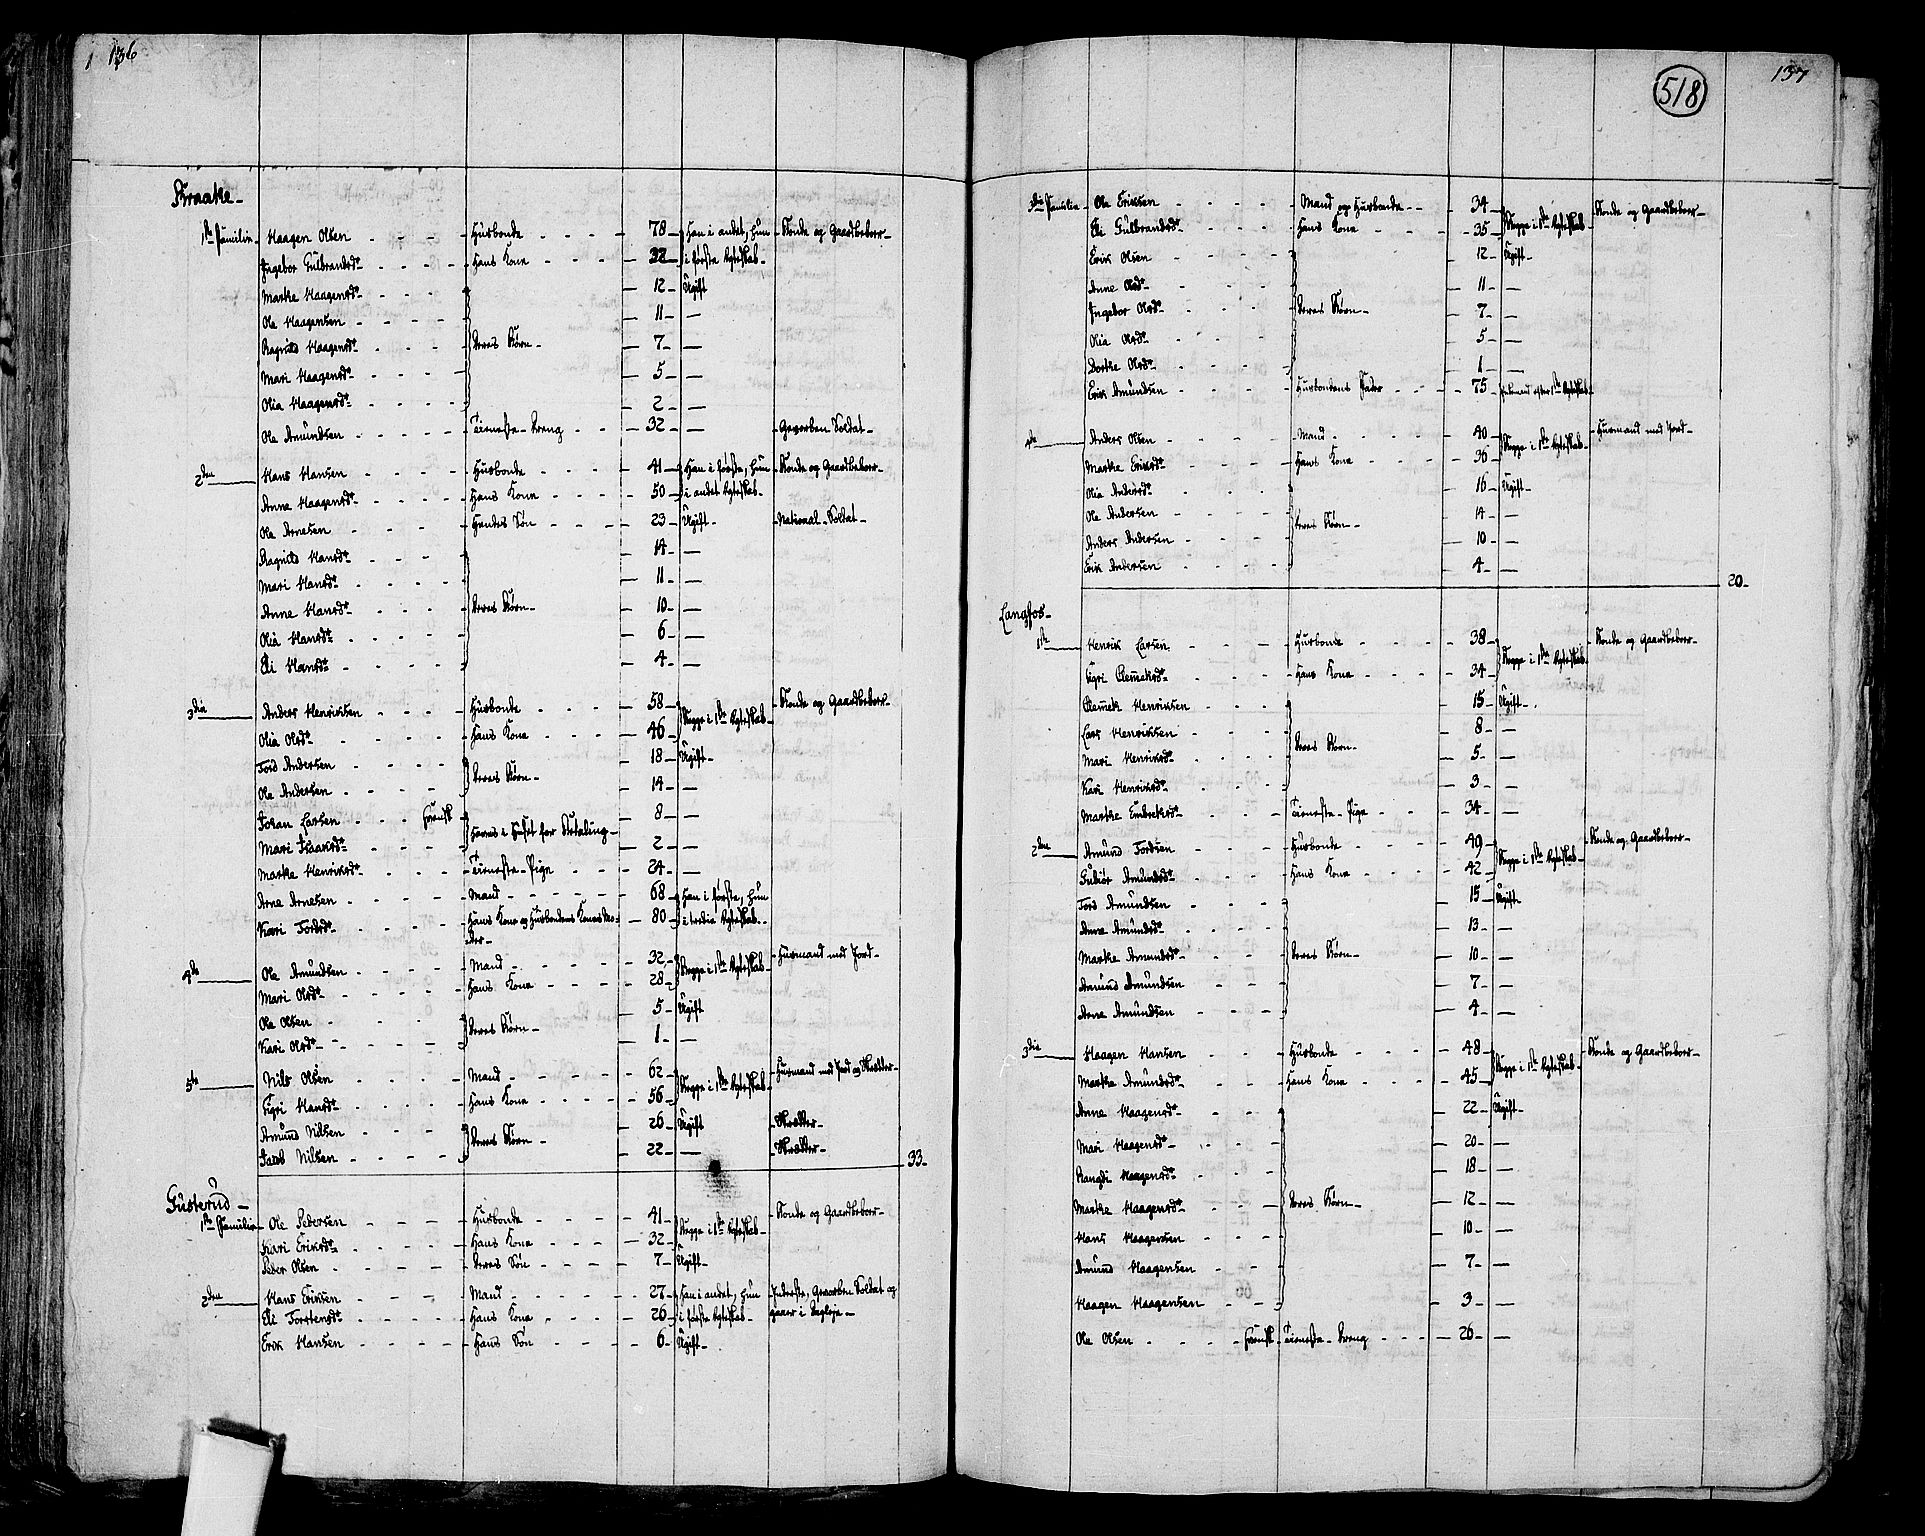 1 136
Kraake -
1ste Familie - Haagen Olsen - Husbonde - 78 - Han i andet, hun - Bonde og Gaardbeboer -
Ingebor Gulbrandsdr - Hans Kone - 32 - i første Ægteskab -
Marthe Haagensdr - 12 - Ugift
Ole Haagensen - 11 -
Ragnild Haagensdr - Deres Børn - 7 -
Mari Haagensdr - 5 -
Olia Haagensdr - 2 -
Ole Amundsen - Tieneste-Dreng - 32 - Geworben Soldat -
2den Hans Hansen - Husbonde - 41 - Han i første, hun - Bonde og Gaardbeboer -
Anne Haagensdr - Hans Kone - 50 - i andet Ægteskab -
Ole Arnesen - Hendes Søn - 23 - Ugift - National-Soldat -
Ragnild Hansdr - 14 -
Mari Hansdr - 11 -
Anne Hansdr - Deres Børn - 10 -
Olia Hansdr - 6 -
Eli Hansdr - 4 -
3die Anders Henriksen - Husbonde - 58 - Begge i 1ste Ægteskab - Bonde og Gaardbeboer -
Olia Olsdr - Hans Kone - 46 -
Tord Andersen - Deres Børn - 18 - Ugift -
Ole Andersen - 14 -
Johan Larsen - 8 -
Mari Isaacsdr - 2 -
Marthe Henriksdr - Tieneste-Pige - 24 -
Arne Arnesen - Mand - 68 - Han i første, hun
Kari Tordsdr - Hans Kone og Husbondens Kones Mo- - 80 - i tredie Ægteskab -
der -
4de Ole Amundsen - Mand - 32 - Begge i 1ste Ægteskab - Husmand med Jord -
Mari Olsdr - Hans Kone - 28 -
Ole Olsen - Deres Børn - 5 - Ugift
Kari Olsdr - 1 -
5te Nils Olsen - Mand - 62 - Begge i 1ste Ægteskab - Husmand med Jord og Skrædder -
Sigri Hansdr - Hans Kone - 56 -
Amund Nilsen - Deres Børn - 26 - Ugift - Skrædder -
Jacob Nilsen - 22 - Skrædder -
33 -
Gusterud -
1ste Familie - Ole Pedersen - Husbonde - 41 - Begge i 1ste Ægteskab - Bonde og Gaardbeboer -
Kari Eriksdr - Hans Kone - 32 -
Peder Olsen - Deres Søn - 7 - Ugift -
2den Hans Eriksen - Mand - 27 - Han i andet, hun - Inderste, Geworben Soldat og
Eli Torstensdr - Hans Kone - 26 - i første Ægteskab - gaaer i Dagleje -
Erik Hansen - Hans Søn - 6 - Ugift -
518
137
3die Familie - Ole Eriksen - Mand og Husbonde - 34 - Begge i 1ste Ægteskab - Bonde og Gaardbeboer -
Eli Gulbrandsdr - Hans Kone - 35 -
Erik Olsen - 12 - Ugift -
Anne Olsdr - 11 -
Ingebor Olsdr - Deres Børn - 7 -
Olia Olsdr - 5 -
Dorthe Olsdr - 1 -
Erik Amundsen - Husbondens Fader - 75 - Enkemand efter 1ste Ægteskab -
4de Anders Olsen - Mand - 40 - Begge i 1ste Ægteskab - Husmand med Jord -
Marthe Eriksdr - Hans Kone - 36 -
Olia Andersdr - 16 - Ugift -
Ole Andersen - Deres Børn - 14 -
Anders Andersen - 10 -
Erik Andersen - 4 -
20 -
Langfos -
1ste Henrik Larsen - Husbonde - 38 - Begge i 1ste Ægteskab - Bonde og Gaardbeboer -
Sigri Clemetsdr - Hans Kone - 34 -
Clemet Henriksen - 15 - Ugift -
Lars Henriksen - Deres Børn - 8 -
Mari Henriksdr - 5 -
Kari Henriksdr - 3 -
Marthe Embretsdr - Tieneste-Pige - 34 -
2den Amund Tordsen - Husbonde - 49 - Begge i 1ste Ægteskab - Bonde og Gaardbeboer -
Gubiør Amundsdr - Hans Kone - 42 -
Tord Amundsen - 15 - Ugift -
Anne Amundsdr - 13 -
Marthe Amundsdr - Deres Børn - 10 -
Amund Amundsen - 7 -
Arne Amundsen - 4 -
3die Haagen Hansen - Husbonde - 48 - Begge i 1ste Ægteskab - Bonde og Gaardbeboer -
Marthe Amundsdr - Hans Kone - 45 -
Anne Haagensdr - 22 - Ugift -
Mari Haagensdr - 20 -
Rangdi Haagensdr - 18 -
Marthe Haagensdr - Deres Børn - 12 -
Hans Haagensen - 10 -
Amund Haagensen - 7 -
Haagen Haagensen - 3 -
Ole Olsen - Tieneste-Dreng - 26 -